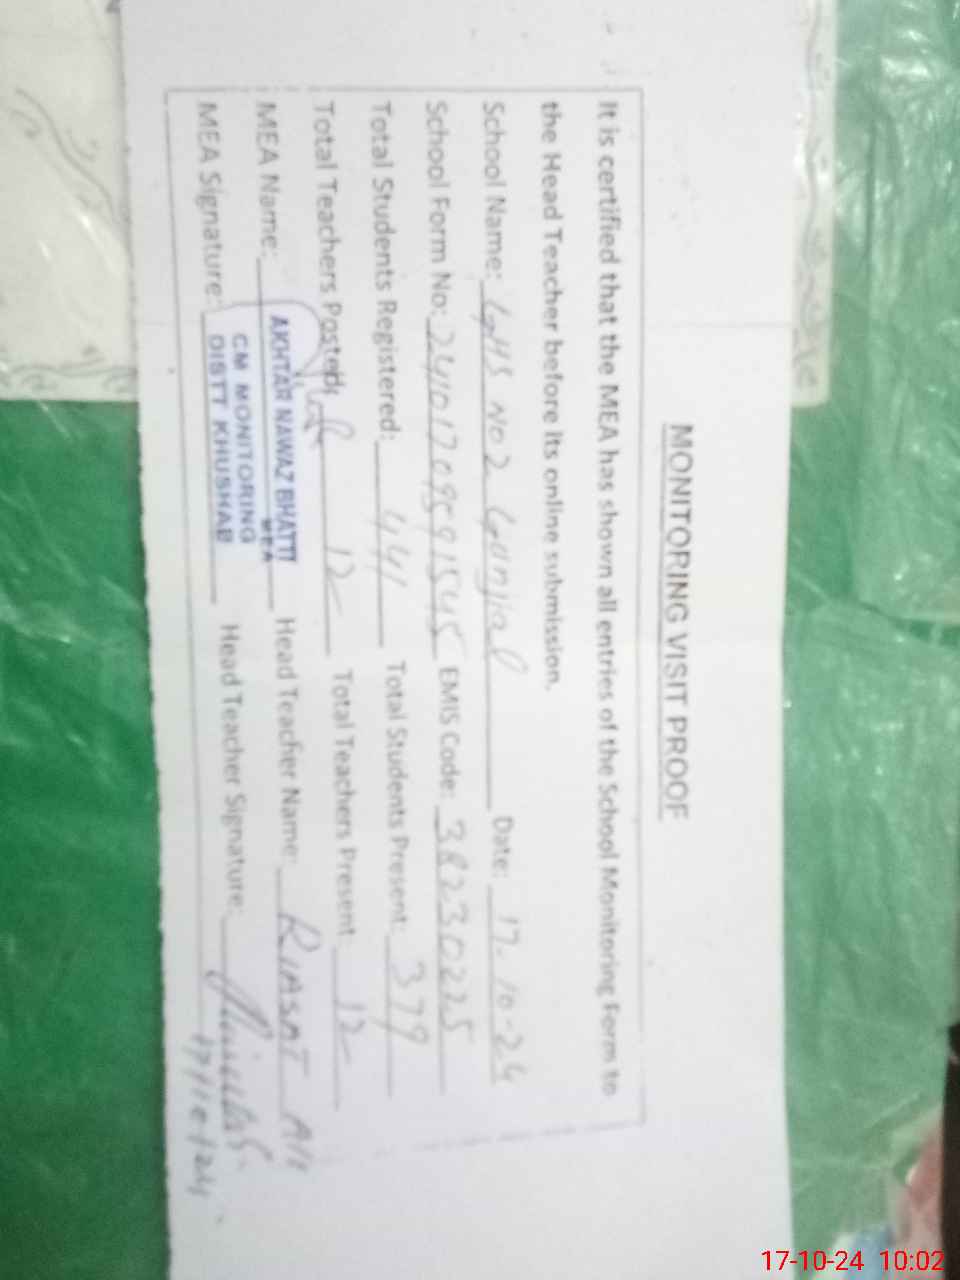 MONITORING VISIT PROOF
It is certified that the MEA has shown all entries of the School Monitoring Form to
the Head Teacher before its online submission.
School Name: GHS NO 2 Gunjial Date: 17-10-24
School Form No: EMIS Code: 38230225
Total Students Registered: 441 Total Students Present: 379
Total Teachers Posted: 12 Total Teachers Present: 12
MEA Name: AKHTAR NAWAZ BHATTI Head Teacher Name: RIASAT Ali
MEA
MEA Signature: CM MONITORING Head Teacher Signature:
DISTT KHUSHAB
17/10/24
17-10-24 10:02